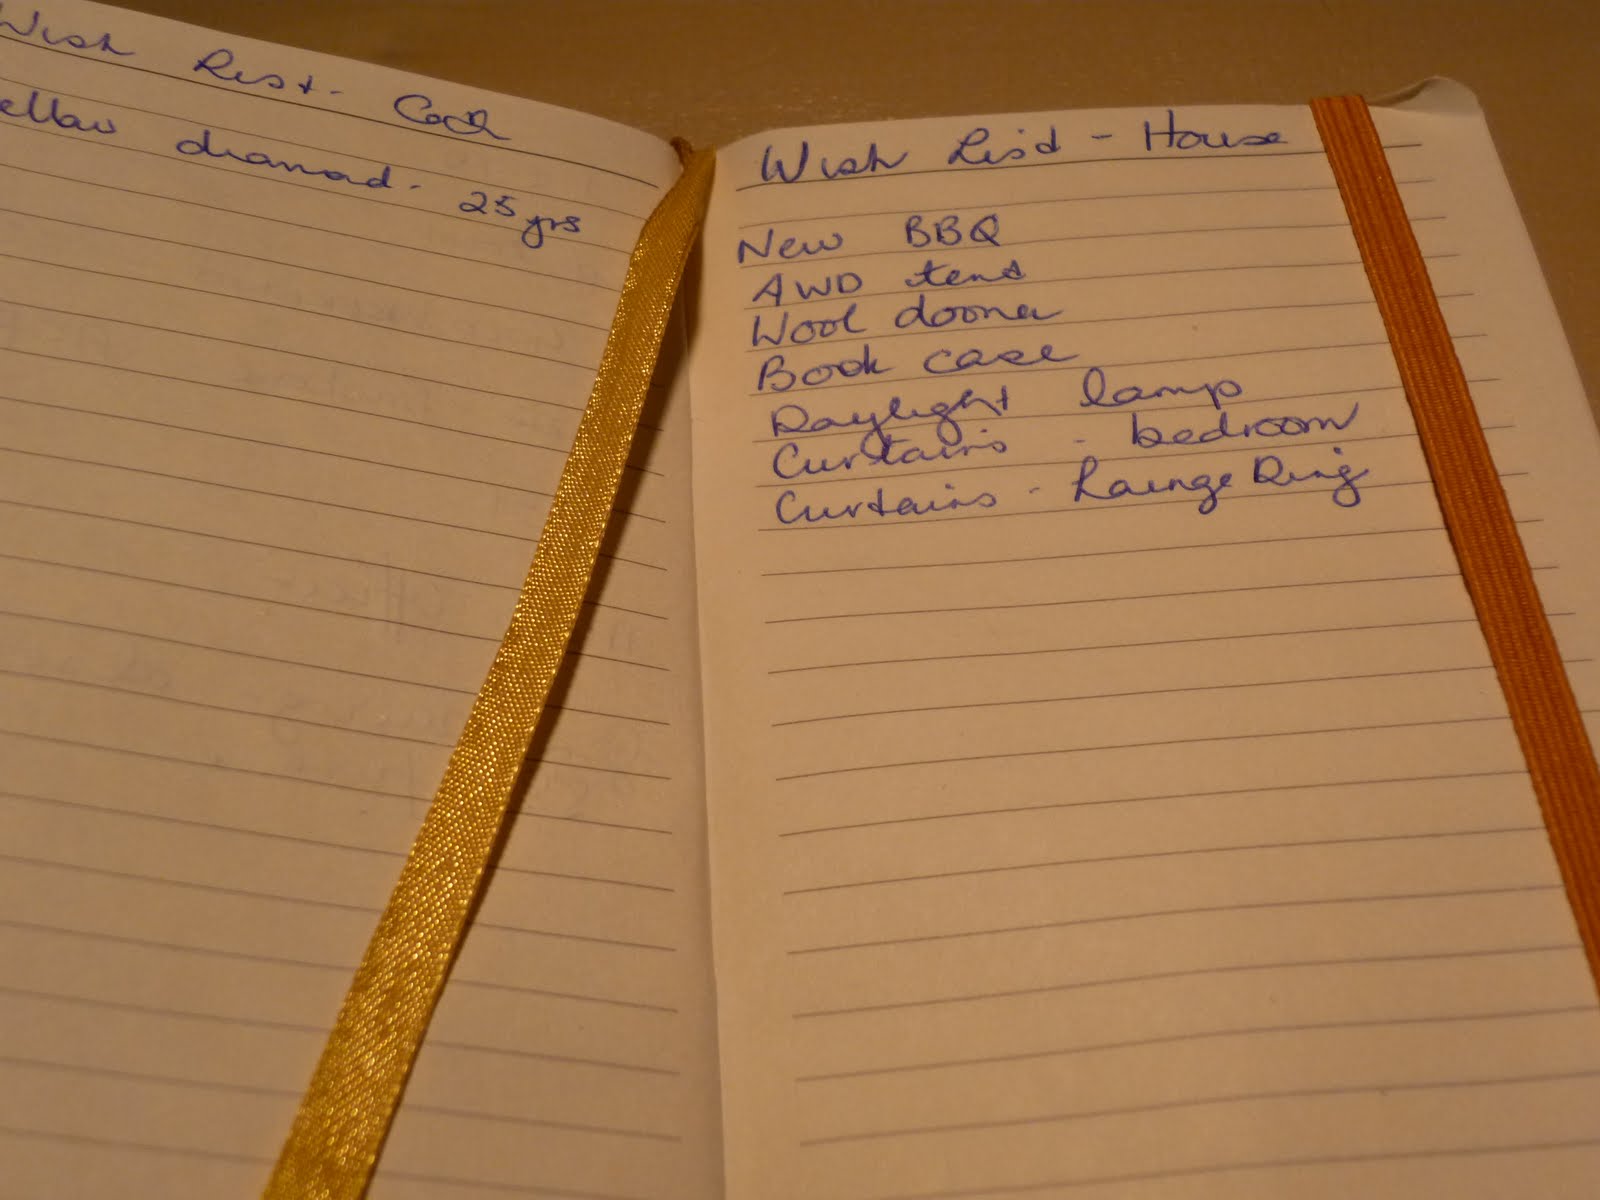 Wish List - Cath
ellow diamond - 25 yrs
Wish List - House
New BBQ
AWD tent
Wool doona
Book case
Daylight lamp
Curtains - bedroom
Curtains - Lounge Dinig